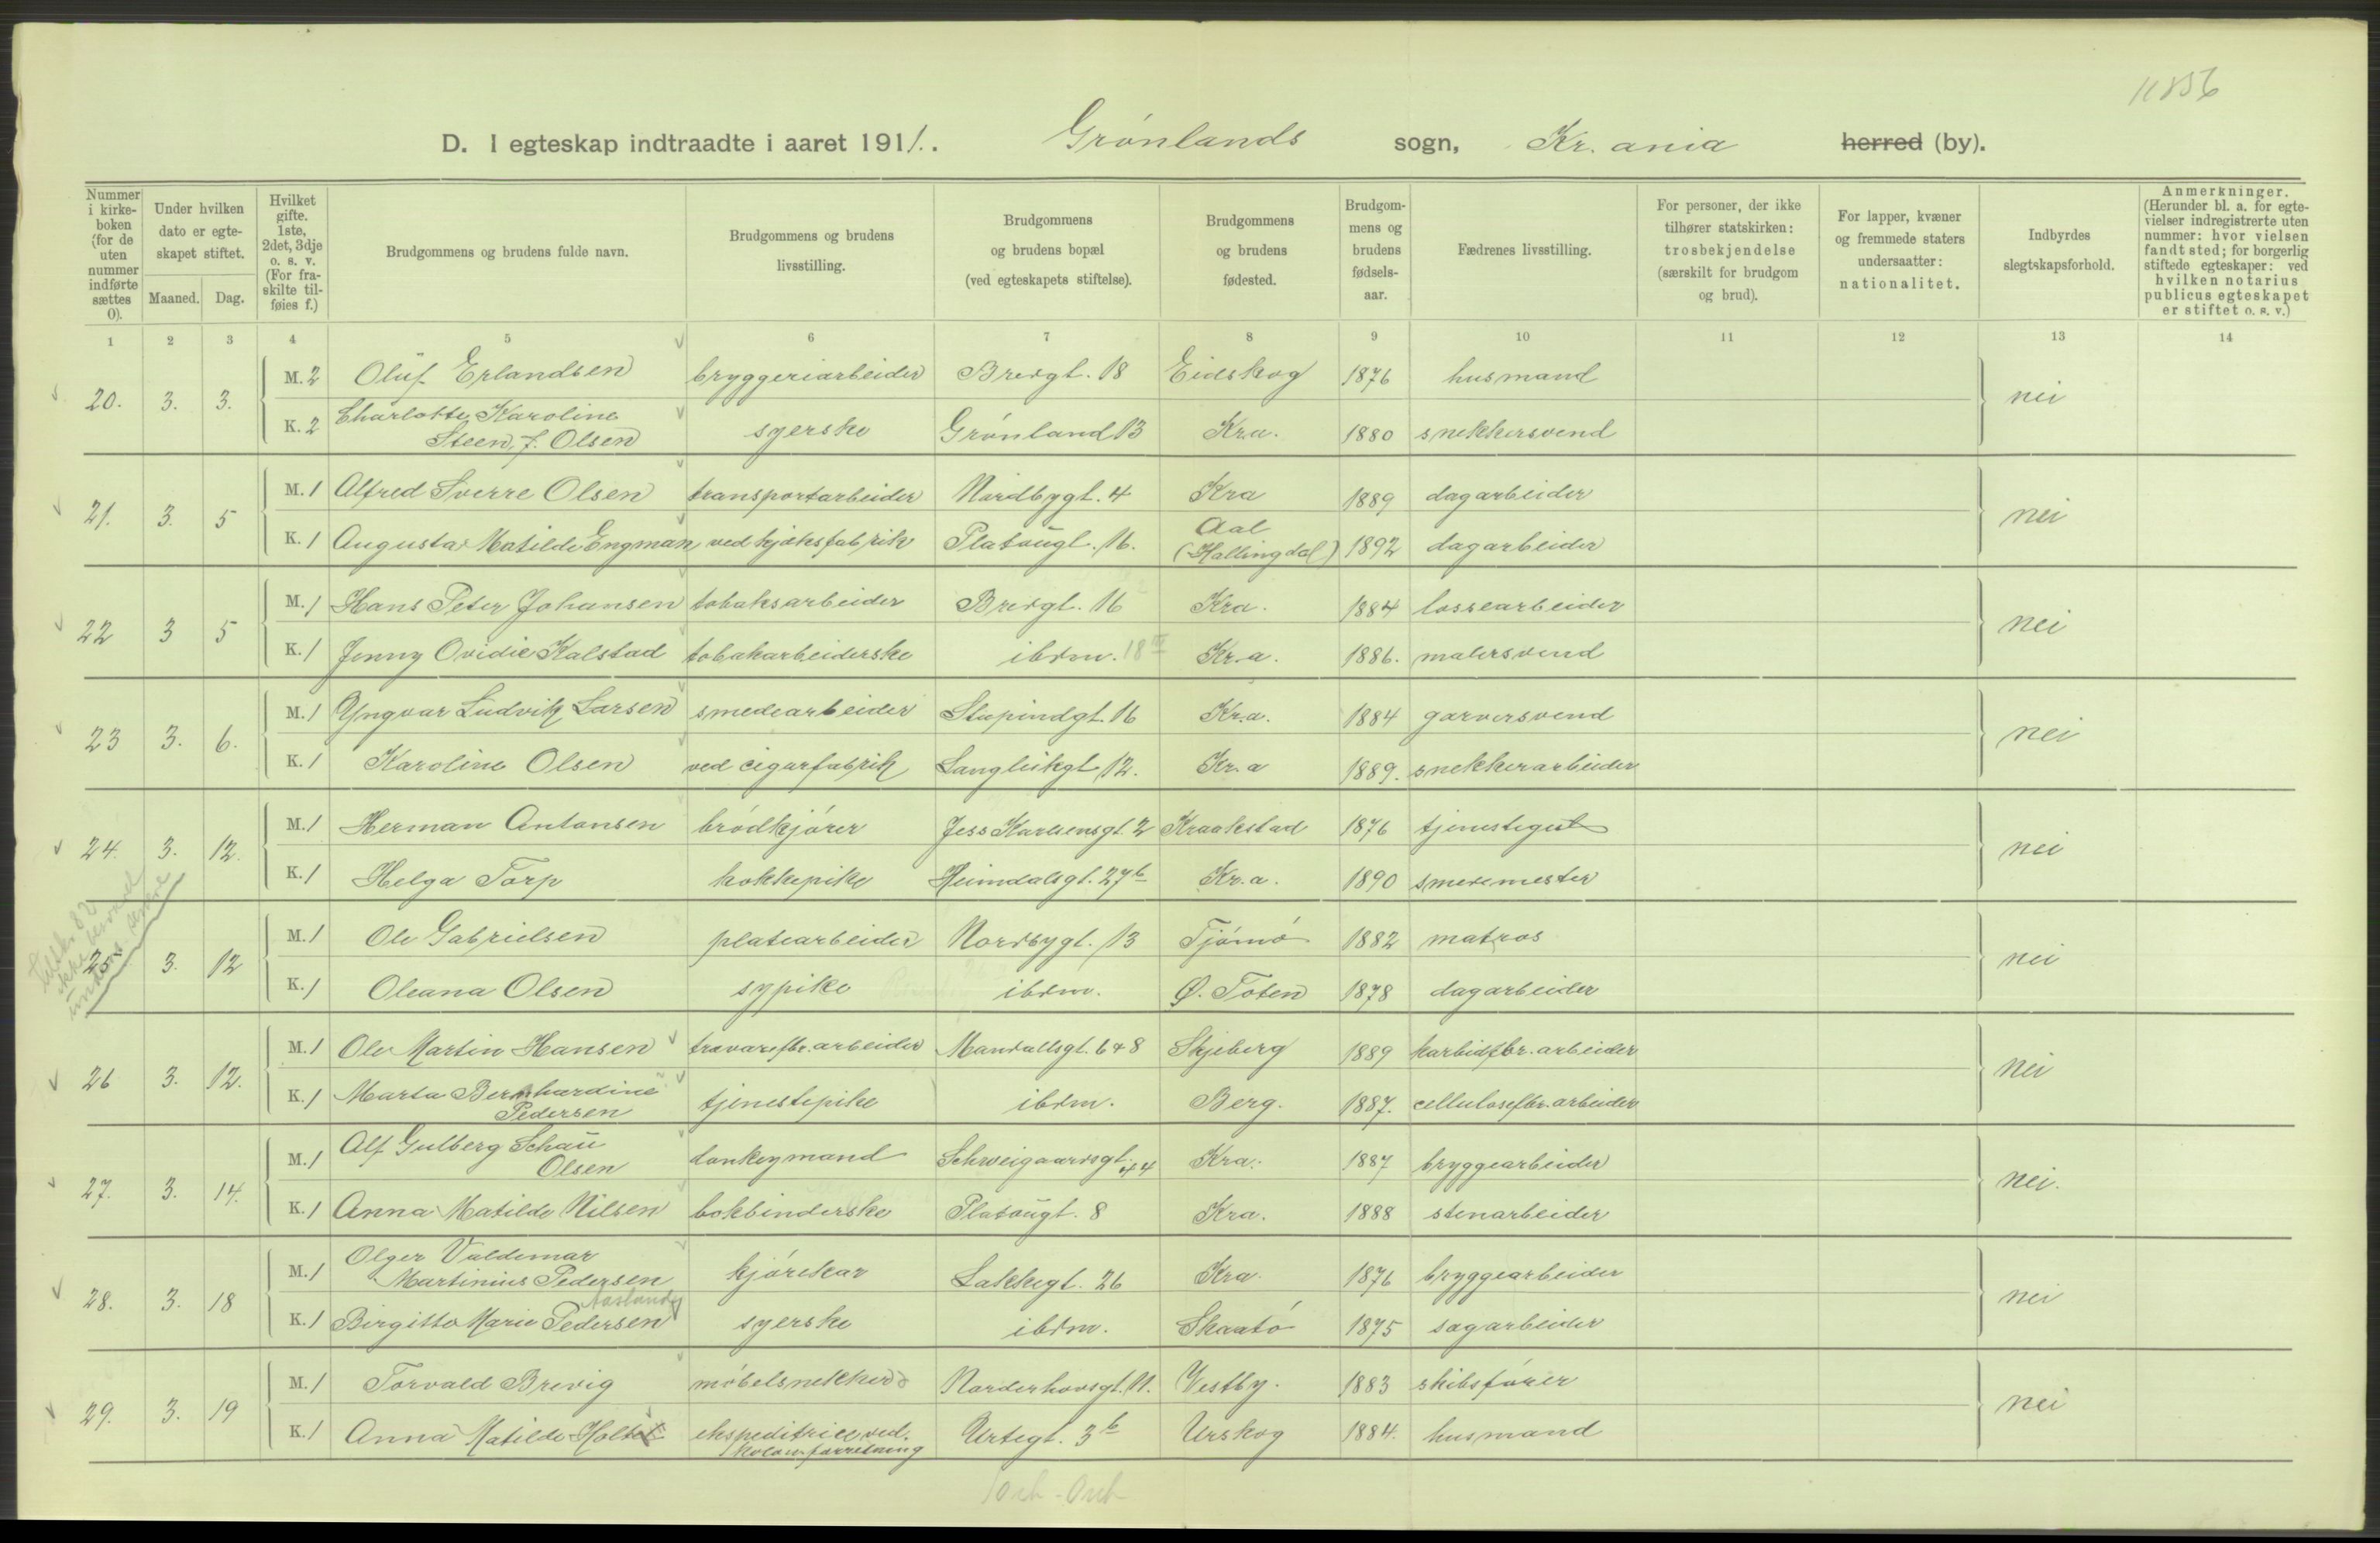 11856
D. I egteskap indtraadte i aaret 1911. Grønlands sogn, Kr.ania herred (by).
Nummer i kirke-boken (for de uten nummer indførte sættes 0).
Under hvilken dato er egte-skapet stiftet.
Maaned. Dag.
Hvilket gifte. 1ste, 2det, 3dje o. s. v. (For fra-skilte til-føies f.)
Brudgommens og brudens fulde navn.
Brudgommens og brudens livsstilling.
Brudgommens og brudens bopæl (ved egteskapets stiftelse).
Brudgommens og brudens fødested.
Brudgom-mens og brudens fødsels-aar.
Fædrenes livsstilling.
For personer, der ikke tilhører statskirken: trosbekjendelse (særskilt for brudgom og brud).
For lapper, kvæner og fremmede staters undersaatter: nationalitet.
Indbyrdes slegtskapsforhold.
Anmerkninger. (Herunder bl. a. for egte-vielser indregistrerte uten nummer: hvor vielsen fandt sted; for borgerlig stiftede egteskaper: ved hvilken notarius publicus egteskapet er stiftet o. s. v.)
1 2 3 4 5 6 7 8 9 10 11 12 13 14
20. 3. 3. M. 2 Oluf Erlandsen bryggeriarbeider Bredgt. 18 Eidskog 1876 husmand nei
K. 2 Charlotte Karoline
Steen, f. Olsen syerske Grønland 13 Kr.a. 1880 snekkersvend
21. 3. 5 M. 1 Alfred Sverre Olsen transportarbeider Nordbygt. 4 Kra 1889 dagarbeider nei
K. 1 Augusta Matilde Engman ved kjæksfabrik Platougt. 16. Aal
(Hallingdal) 1892 dagarbeider
22 3 5 M. 1 Hans Peter Johansen tobaksarbeider Bredgt. 16 Kra. 1884 lossearbeider nei
K. 1 Jenny Ovidie Kalstad tobakarbeiderske ibdm. 18 III Kr.a. 1886. malersvend
23 3. 6. M. 1 Yngvar Ludvik Larsen smedearbeider Stupindgt. 16 Kr.a. 1884 garversvend nei
K. 1 Karoline Olsen ved cigarfabrik Langleikgt. 12. Kr.a 1889. snekkerarbeider
24. 3. 12. M. 1 Herman Antonsen brødkjører Jess Karlsensgt. 2 Kraakstad 1876 tjenestegut nei
K. 1 Helga Torp kokkepike Heimdalsgt. 27b Kr.a. 1890 smedmester
25. 3. 12 M. 1 Ole Gabrielsen platearbeider Nordbygt. 13 Tjømø 1882 matros nei
K. 1 Oleana Olsen sypike ibdm. Ø. Toten 1878 dagarbeider
26 3. 12. M. 1 Ole Martin Hansen trævarefbr.arbeider Mandallsgt. 6 & 8 Skjeberg 1889 karbidfbr.arbeider nei
K. 1 Marta Bernhardine
Pedersen tjenestepike ibdm. Berg. 1887. cellulosefbr.arbeider
27. 3. 14. M. 1 Alf Gulberg Schau
Olsen donkeymand Schweigaardsgt. 44 Kra. 1887 bryggearbeider nei.
K. 1 Anna Matilde Nilsen bokbinderske Platougt. 8 Kra. 1888 stenarbeider
28. 3. 18 M. 1 Olger Valdemar
Martinius Pedersen kjørekar Lakkegt. 26 Kra. 1876 bryggearbeider nei
Aaslund
K. 1 Birgitte Marie Pedersen syerske ibdm. Skaatø 1875 sagarbeider
29. 3. 19 M. 1 Torvald Brevig møbelsnekker Norderhovsgt. 11. Vestby. 1883 skibsfører nei
K. 1 Anna Matilde Holtet ekspeditrice ved
kolon.forretning Urtegt. 3b Urskog 1884. husmand